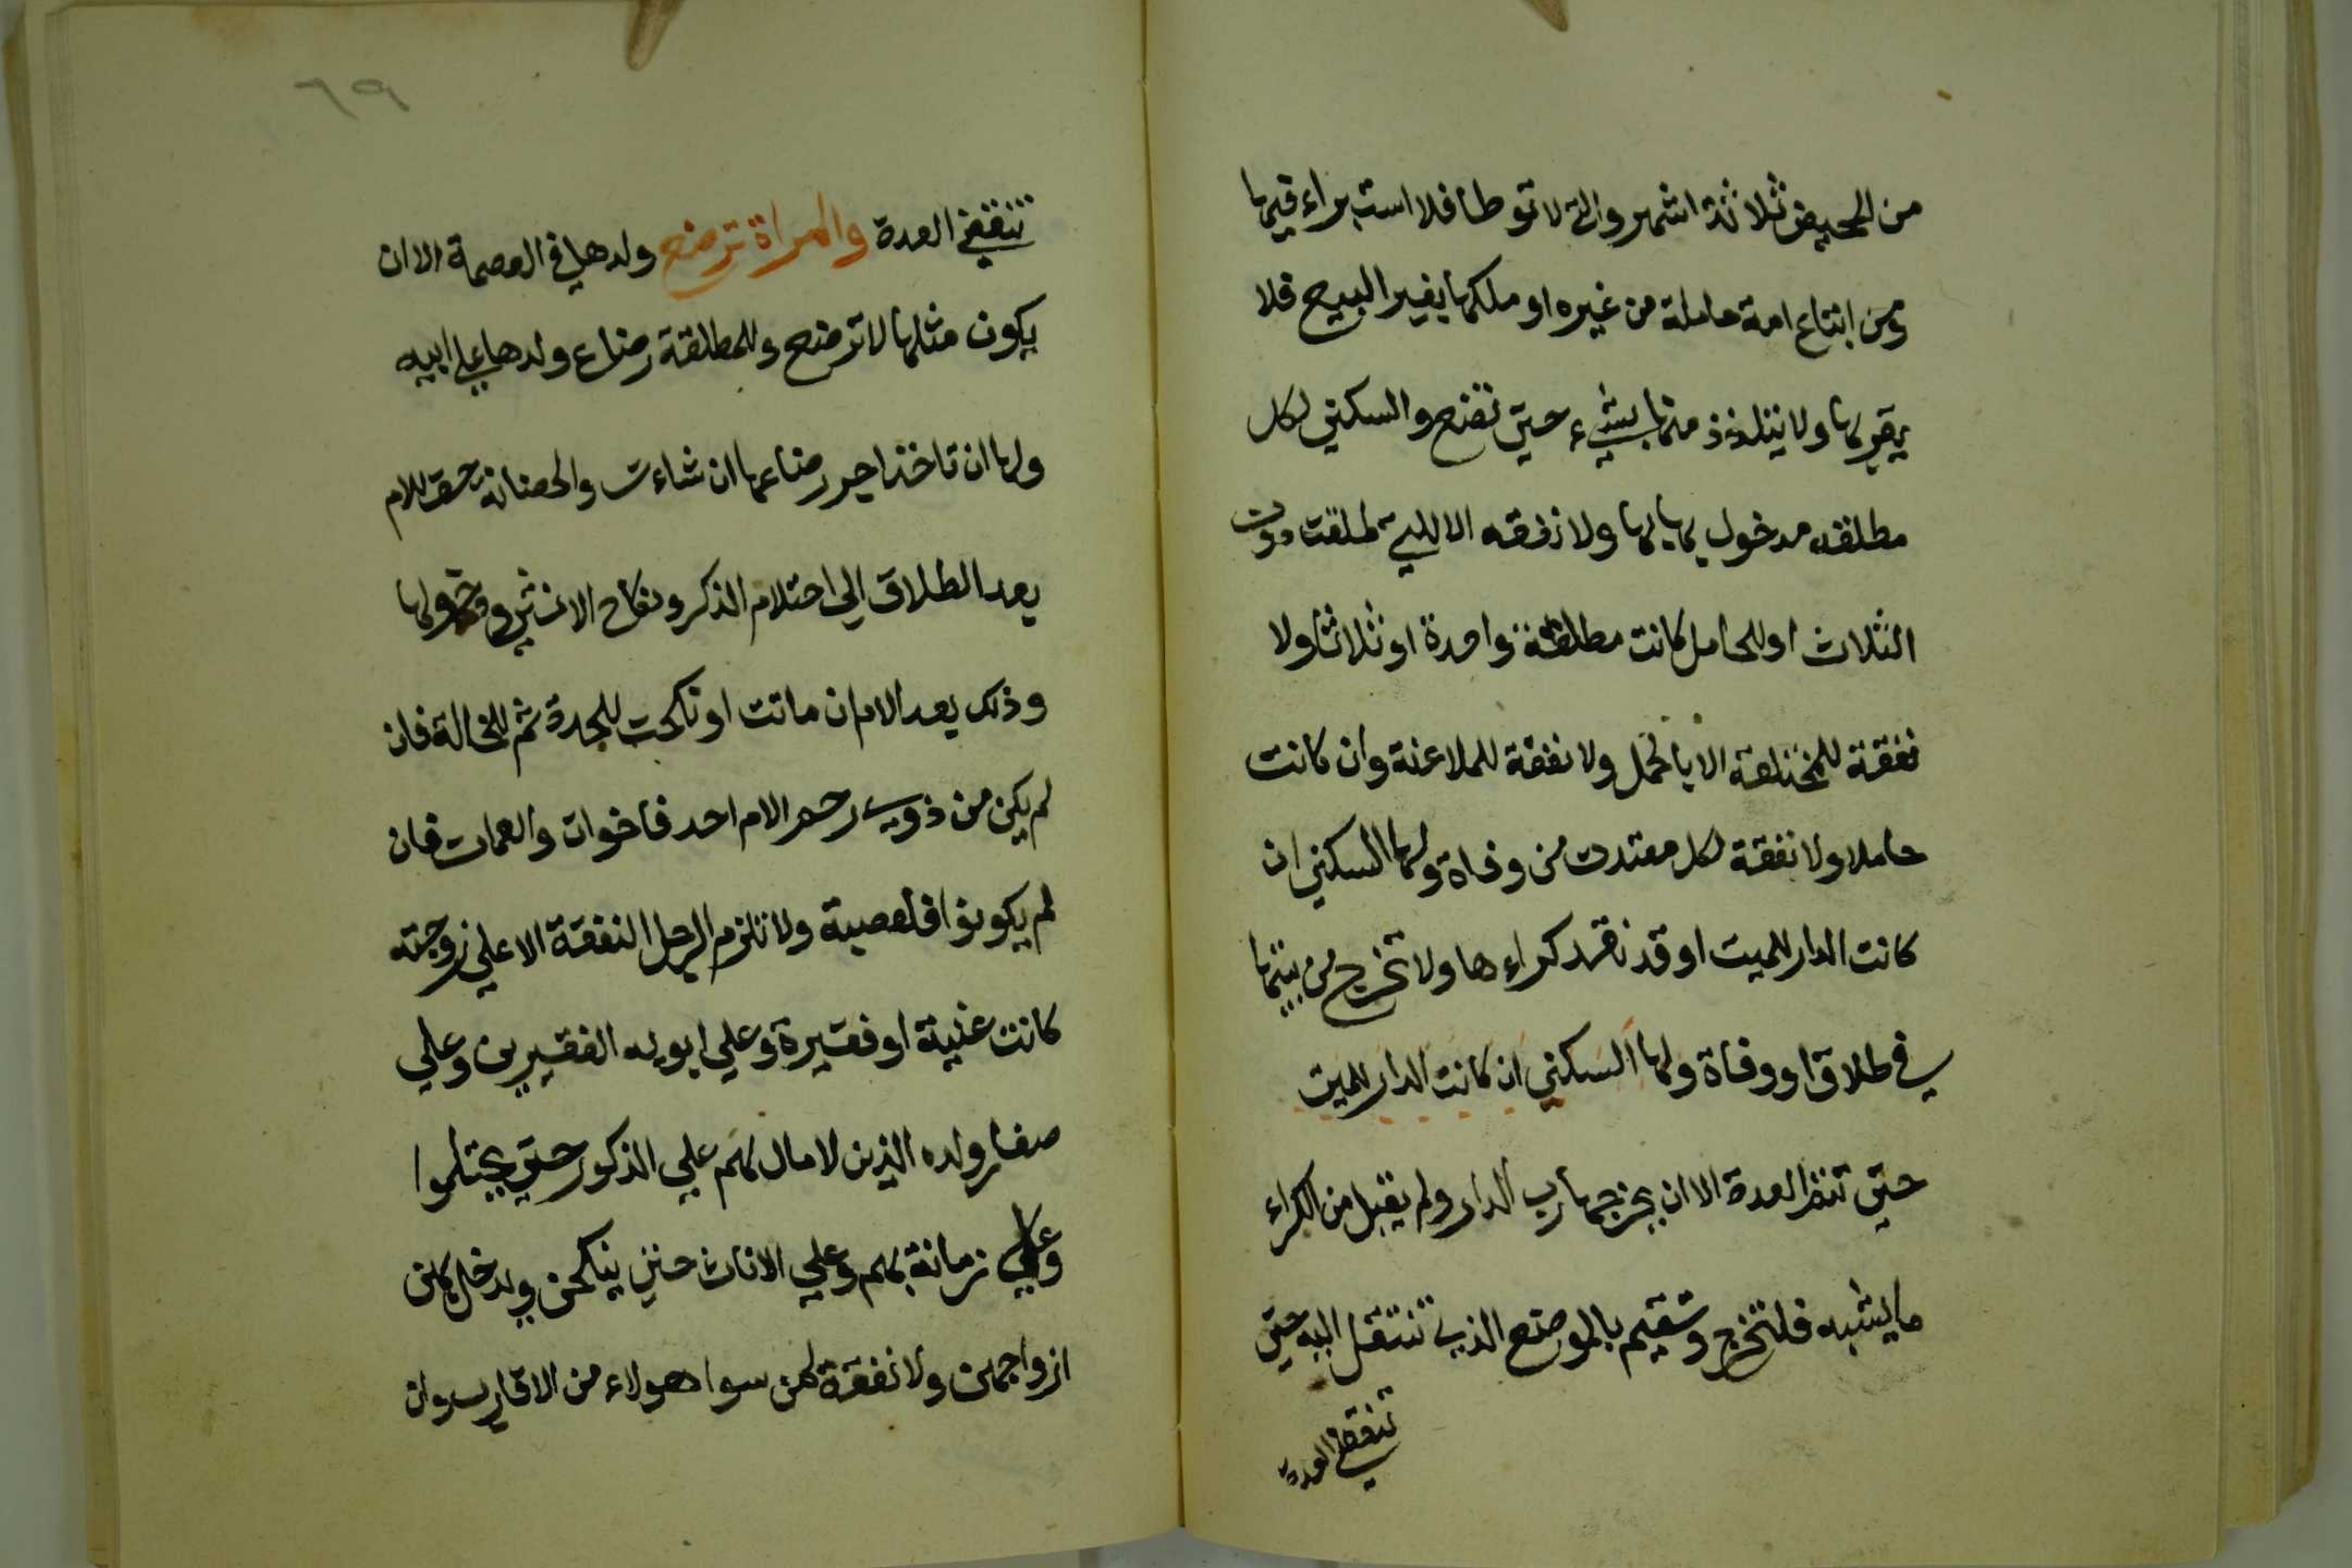 من الحيض ثلاثة اشهر والتي لا توطا فلا استبراء فيها
ومن ابتاع امة حاملة من غيره او ملكها بغير البيع فلا
يقربها ولا يتلذذ منها بشيء حتي تضع والسكني لكل
مطلقه مدخول بها لها ولا نفقه الا للتي طلقت دون
الثلاث او للحامل كانت مطلقة واحدة او ثلاثا ولا
نفقة للمختلعة الا بالحمل ولا نفقة للملاعنة وان كانت
حاملا ولا نفقة لكل معتدت من وفاة ولها السكني ان
كانت الدار للميت او قد نقد كراءها ولا تخرج من بيتها
في طلاق او وفاة ولها السكني ان كانت الدار للميت
حتي تنقض العدة الا ان يخرجها رب الدار ولم يقبل من الكراء
ما يشبه فلتخرج وتقيم بالموضع الذي تنتقل اليه حتي
تنقضي العدة
٦٩
تنقضي العدة والمراة ترضع ولدها في العصمة الا ان
يكون مثلها لا ترضع وللمطلقة رضاع ولدها علي ابيه
ولها ان تاخذ اجر رضاعها ان شاءت والحضانة حق للام
بعد الطلاق الي احتلام الذكر ونكاح الانثي ودخولها
وذلك بعد الام ان ماتت او نكحت للجدة ثم للخالة فان
لم يكن من ذوي رحم الام احد فاخوات والعمات فان
لم يكونوا فلعصبة ولا تلزم الرجل النفقة الا علي زوجته
كانت غنية او فقيرة وعلي ابويه الفقيرين وعلي
صغار ولده الذين لا مال لهم علي الذكور حتي يحتلموا
ولا زمانة بهم وعلي الاناث حتي ينكحن ويدخل بهن
ازواجهن ولا نفقة لمن سوا هولاء من الاقارب وان